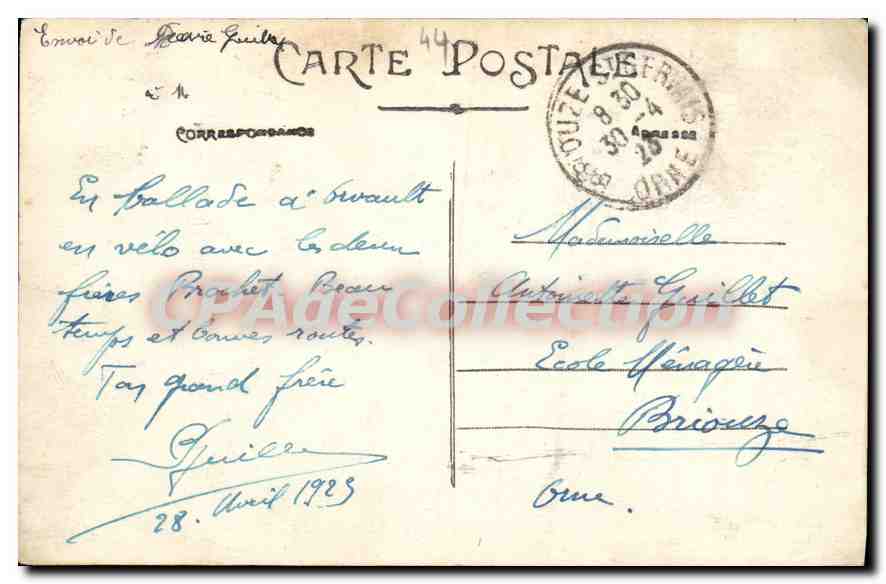 Envoi de Marie Guillet
44
CARTE POSTALE
à M
CORRESPONDANCE
ADRESSE
BRIOUZE-ST GERVAIS
8 30
30 -4
23
ORNE
En ballade à Orvault
en vélo avec les deux
frères Brochet. Beau
temps et bonnes routes.
Ton grand frère
Guillet
28. Avril 1923
Mademoiselle
Antoinette Guillet
Ecole Ménagère
Briouze
Orne.
CPAdeCollection